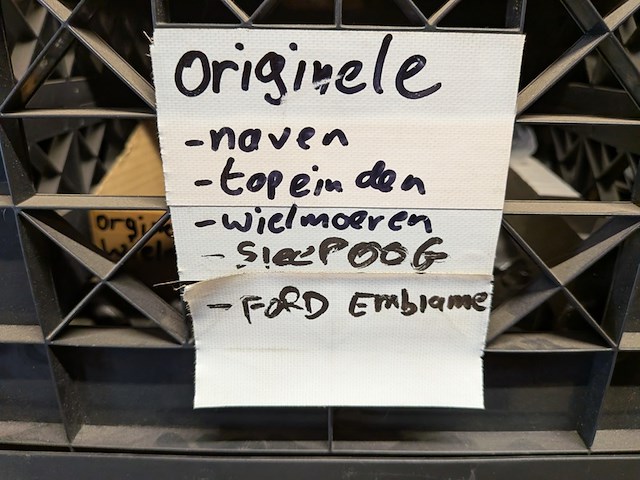 Originele
-naven
-topeinden
-wielmoeren
-SleepOOG
-FORD Emblame
orgin